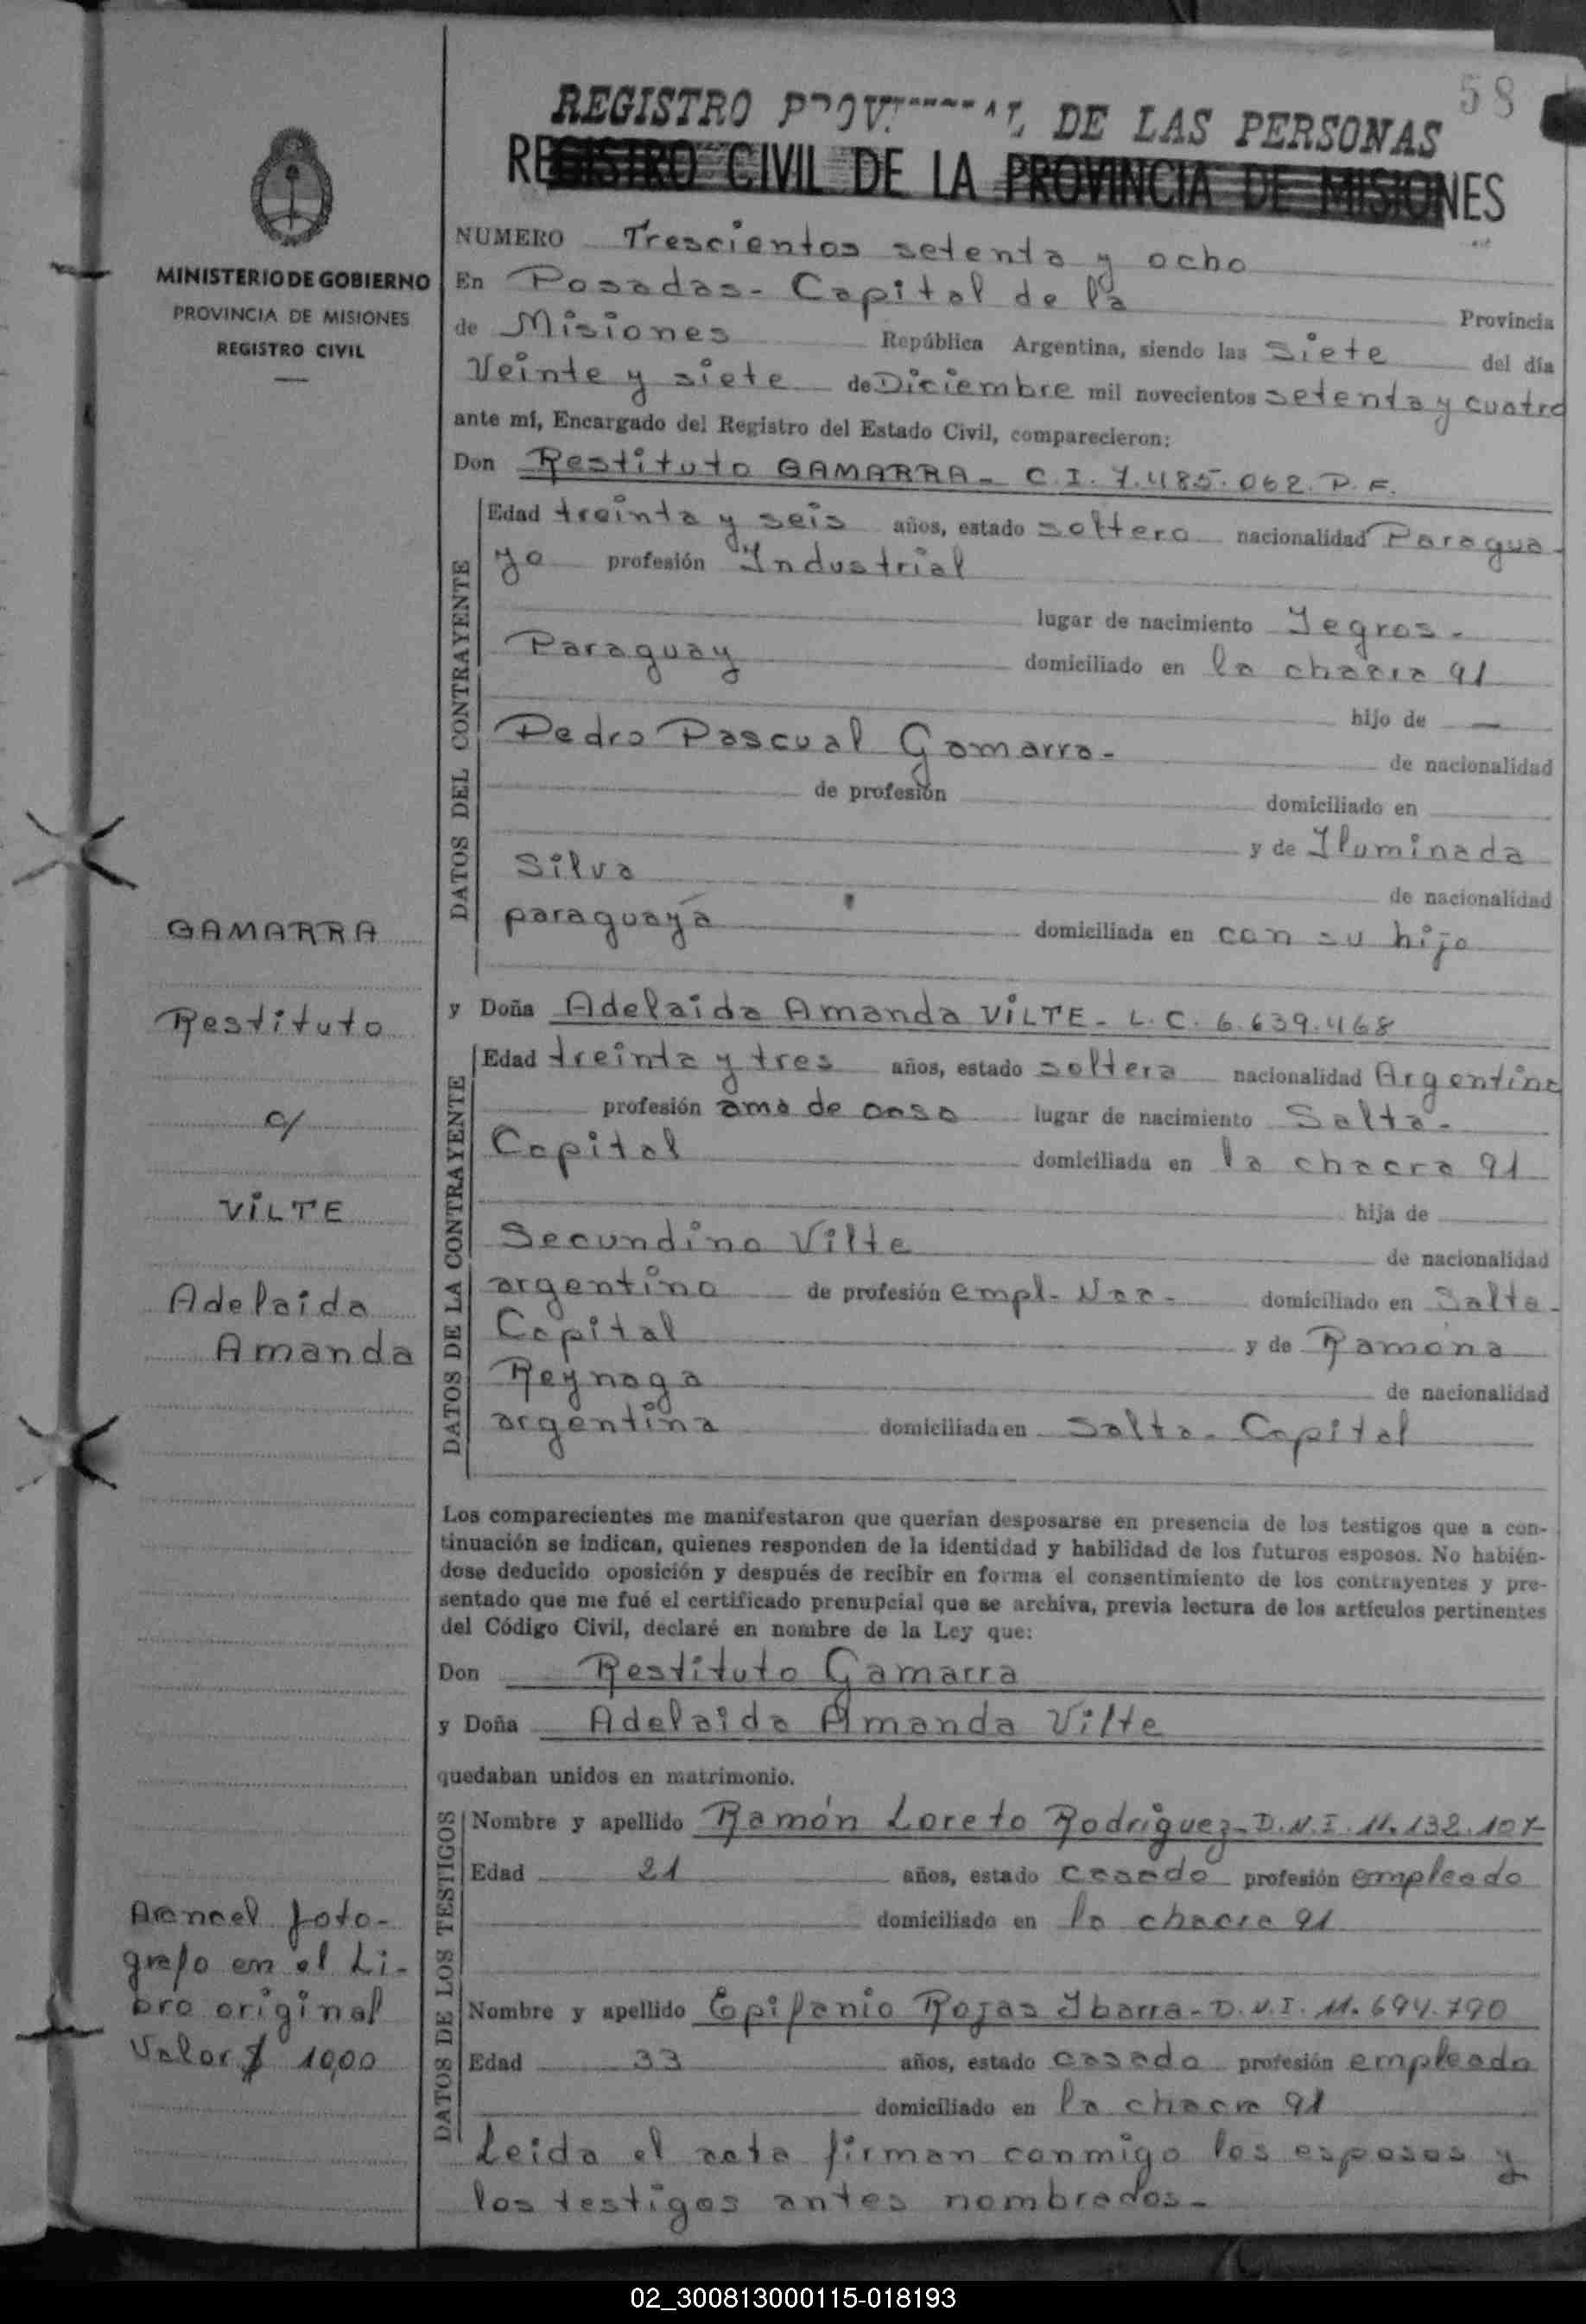 58
REGISTRO PROVINCIAL DE LAS PERSONAS
REGISTRO CIVIL DE LA PROVINCIA DE MISIONES
MINISTERIO DE GOBIERNO
PROVINCIA DE MISIONES
REGISTRO CIVIL
NUMERO Trescientos setenta y ocho
En Posadas - Capital de la Provincia
de Misiones República Argentina, siendo las siete del día
Veinte y siete de Diciembre mil novecientos setenta y cuatro
ante mí, Encargado del Registro del Estado Civil, comparecieron:
Don Restituto GAMARRA - C.I. 7.485.062. P.F.
DATOS DEL CONTRAYENTE
Edad treinta y seis años, estado soltero nacionalidad Paragua-
yo profesión Industrial
lugar de nacimiento Yegros -
Paraguay domiciliado en la chacra 91
hijo de —
Pedro Pascual Gamarra - de nacionalidad
de profesión domiciliado en
y de Iluminada
Silva de nacionalidad
paraguaya domiciliada en con su hijo
GAMARRA
Restituto
c/
VILTE
Adelaida
Amanda
y Doña Adelaida Amanda VILTE - L.C. 6.639.468
DATOS DE LA CONTRAYENTE
Edad treinta y tres años, estado soltera nacionalidad Argentina
profesión ama de casa lugar de nacimiento Salta -
Capital domiciliada en la chacra 91
hija de
Secundino Vilte de nacionalidad
argentino de profesión empl. Nac - domiciliado en Salta -
Capital y de Ramona
Reynaga de nacionalidad
argentina domiciliada en Salta - Capital
Los comparecientes me manifestaron que querían desposarse en presencia de los testigos que a con-
tinuación se indican, quienes responden de la identidad y habilidad de los futuros esposos. No habién-
dose deducido oposición y después de recibir en forma el consentimiento de los contrayentes y pre-
sentado que me fué el certificado prenupcial que se archiva, previa lectura de los artículos pertinentes
del Código Civil, declaré en nombre de la Ley que:
Don Restituto Gamarra
y Doña Adelaida Amanda Vilte
quedaban unidos en matrimonio.
DATOS DE LOS TESTIGOS
Nombre y apellido Ramón Loreto Rodríguez - D.N.I. 11.132.107
Edad 21 años, estado casado profesión empleado
domiciliado en la chacra 91
Nombre y apellido Epifanio Rojas Ybarra - D.N.I. 11.694.790
Edad 33 años, estado casado profesión empleado
domiciliado en la chacra 91
Leida el acta firman conmigo los esposos y
los testigos antes nombrados -
Arancel foto-
grafo en el Li-
bro original
Valor $ 10,00
02_300813000115-018193